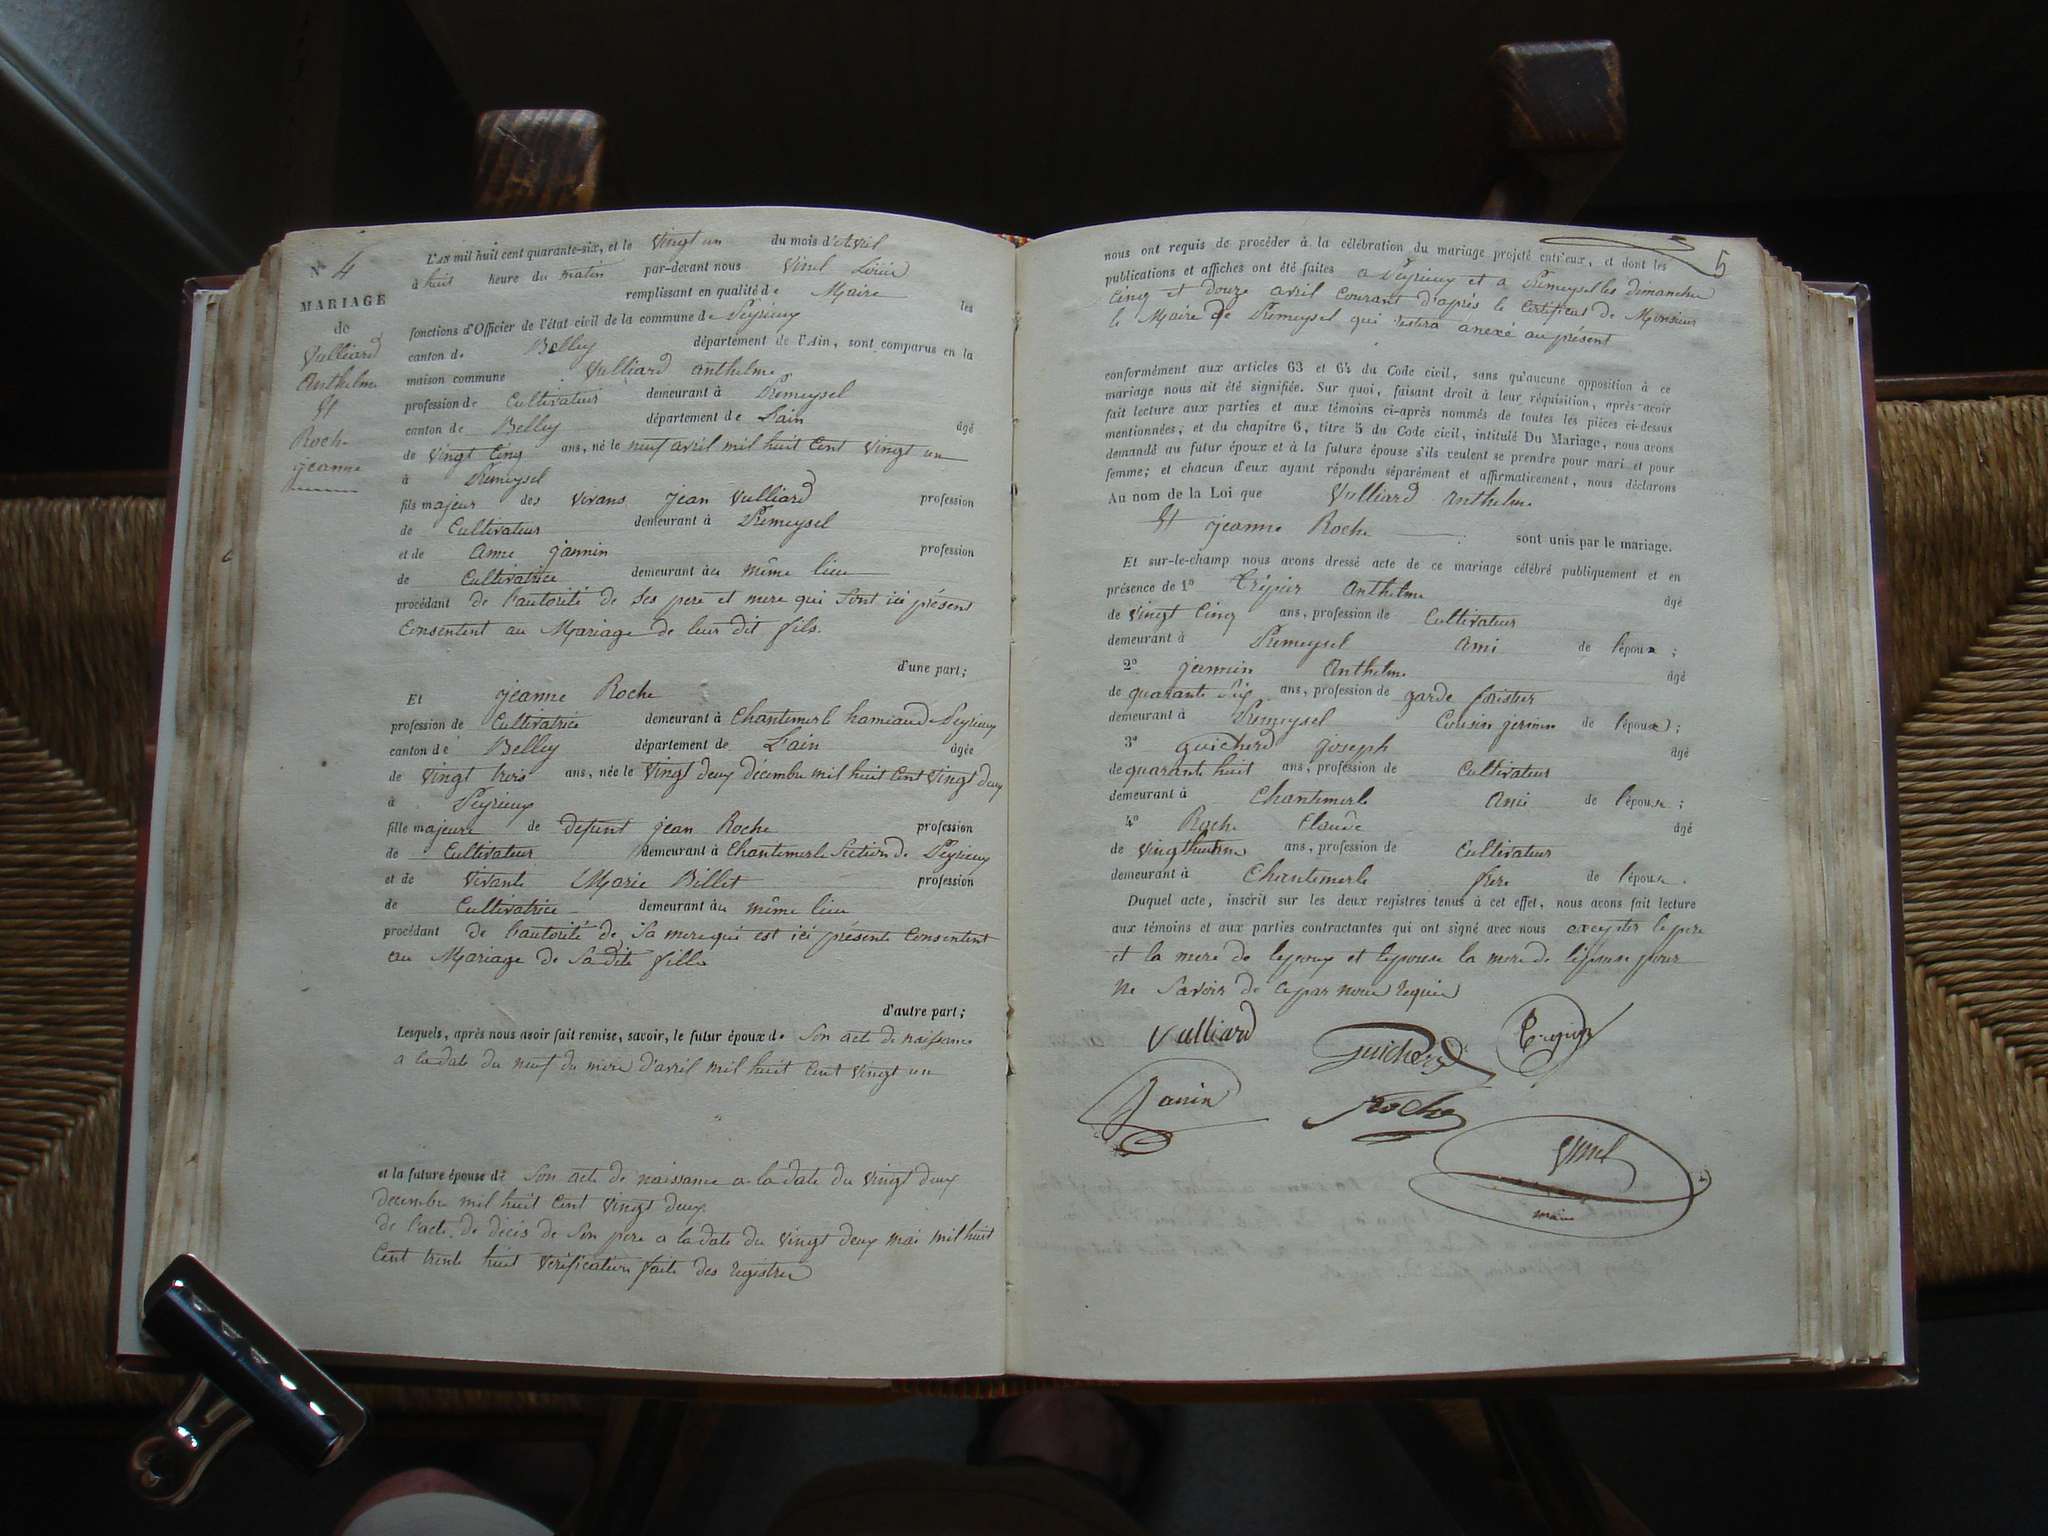 N° 4
MARIAGE
de
Vulliard
Anthelme
Et
Roche
jeanne
L'AN mil huit cent quarante-six, et le vingt un du mois d'Avril
à huit heure du matin par-devant nous Vinel Louis
remplissant en qualité de Maire les
fonctions d'Officier de l'état civil de la commune de Peyrieux
canton de Belley département de l'Ain, sont comparus en la
maison commune Vulliard anthelme
profession de Cultivateur demeurant à Premeysel
canton de Belley département de L'ain âgé
de vingt Cinq ans, né le neuf avril mil huit Cent vingt un
à Premeysel
fils majeur des vivans jean Vulliard profession
de Cultivateur demeurant à Premeysel
et de Anne jannin profession
de Cultivatrice demeurant au même lieu
procédant de l'autorité de ses pere et mere qui sont ici présens
Consentent au Mariage de leur dit fils.
d'une part;
Et jeanne Roche
profession de Cultivatrice demeurant à Chantemerle hameau de Peyrieux
canton de Belley département de L'ain âgée
de vingt trois ans, née le vingt deux décembre mil huit Cent vingt deux
à Peyrieux
fille majeure de defunt jean Roche profession
de Cultivateur demeurant à Chantemerle Section de Peyrieux
et de vivante Marie Billet profession
de Cultivatrice demeurant au même lieu
procédant de l'autorité de sa mere qui est ici présente Consentent
au Mariage de sa dite fille
d'autre part;
Lesquels, après nous avoir fait remise, savoir, le futur époux de son acte de naissance
a la date du neuf du mois d'avril mil huit Cent vingt un
et la future épouse de son acte de naissance a la date du vingt deux
decembre mil huit Cent vingt deux
de l'acte de décès de son pere a la date du vingt deux mai mil huit
Cent trente huit vérification faite des registres
5
nous ont requis de procéder à la célébration du mariage projeté entr'eux, et dont les
publications et affiches ont été faites a Peyrieux et a Premeysel les dimanches
Cinq et douze avril Courant d'après le Certificat de Monsieur
le Maire de Premeysel qui restera anexé au présent
conformément aux articles 63 et 64 du Code civil, sans qu'aucune opposition à ce
mariage nous ait été signifiée. Sur quoi, faisant droit à leur réquisition, après avoir
fait lecture aux parties et aux témoins ci-après nommés de toutes les pièces ci-dessus
mentionnées, et du chapitre 6, titre 5 du Code civil, intitulé Du Mariage, nous avons
demandé au futur époux et à la future épouse s'ils veulent se prendre pour mari et pour
femme; et chacun d'eux ayant répondu séparément et affirmativement, nous déclarons
Au nom de la Loi que Vulliard anthelme
Et jeanne Roche sont unis par le mariage.
Et sur-le-champ nous avons dressé acte de ce mariage célébré publiquement et en
présence de 1° Trépier Anthelme âgé
de vingt Cinq ans, profession de Cultivateur
demeurant à Premeysel Ami de l'époux ;
2° jannin Anthelme âgé
de quarante Six ans, profession de garde forestier
demeurant à Premeysel Cousin germain de l'époux ;
3° Guicherd joseph âgé
de quarante huit ans, profession de Cultivateur
demeurant à Chantemerle Ami de l'épouse ;
4° Roche Claude âgé
de vingt huit ans, profession de Cultivateur
demeurant à Chantemerle frere de l'épouse.
Duquel acte, inscrit sur les deux registres tenus à cet effet, nous avons fait lecture
aux témoins et aux parties contractantes qui ont signé avec nous excepter le pere
et la mere de lepoux et lepouse la mere de lépouse pour
ne savoir de ce par nous requis
Vulliard Guicherd
Janin Roche
Vinel
maire